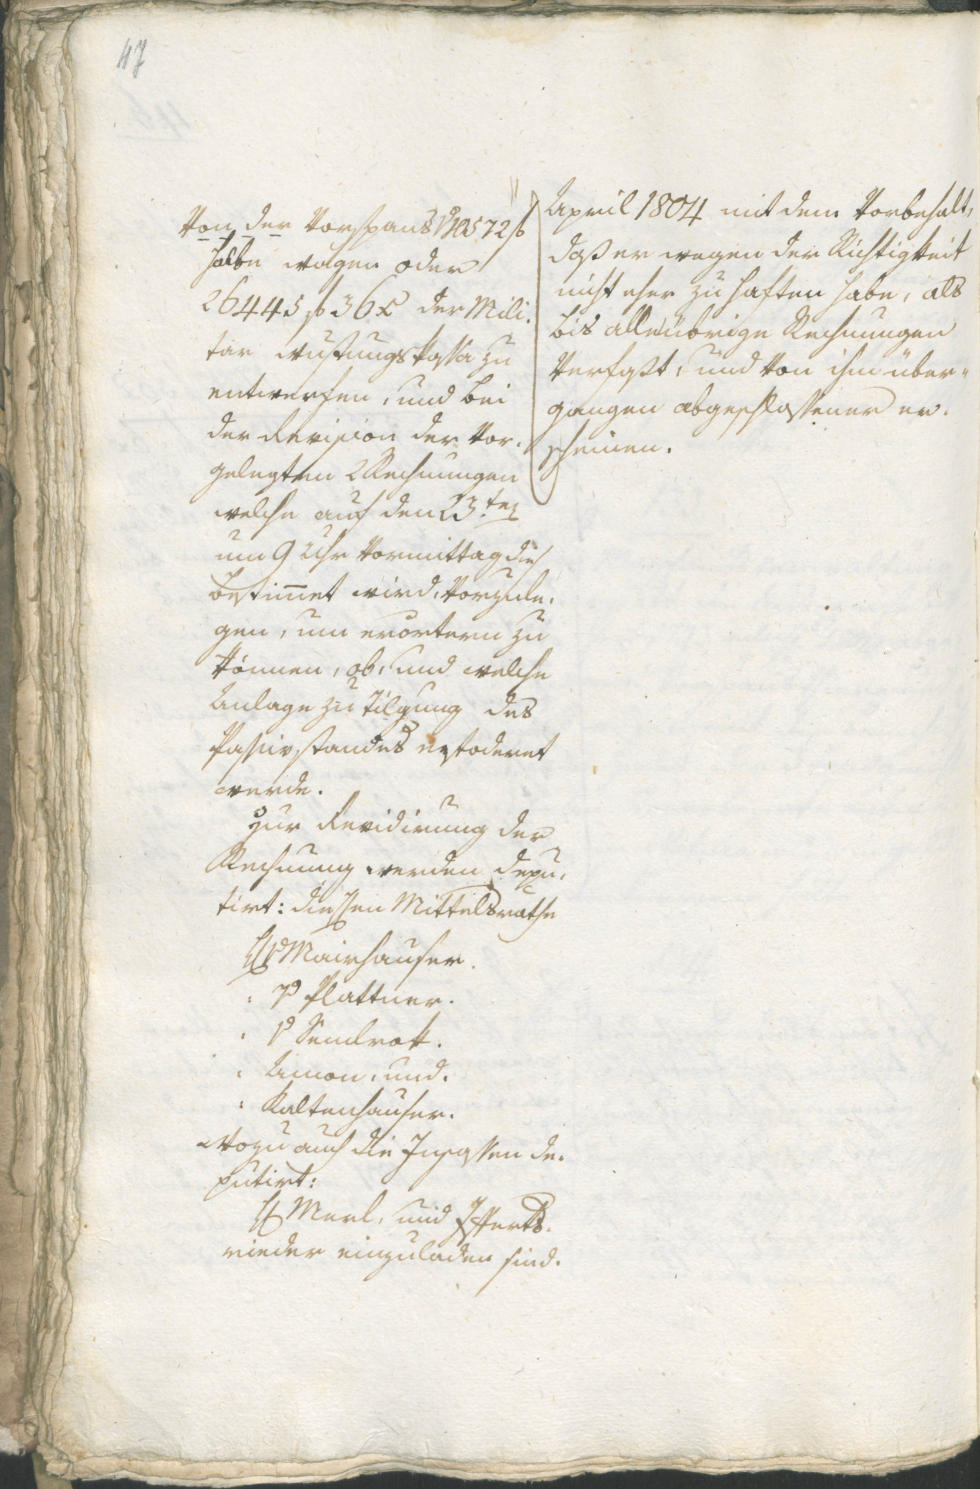 47
Von der Vorspans 10572 f
halbe wagen oder
26445 f 36 x der Mili-
tar rustungs Kassa zu
entwerfen, und bei
der Revision der vor-
gelegten Rechnungen
welche auf den 23.ten
um 9 Uhr Vormittag dies
bestim̅et wird, vorzule-
gen, um erörtern zu
können, ob, und welche
Anlage zu Tilgung des
Passivstandes erfoderet
werde.
Zur Revidirung der
Rechnung werden depu-
tirt: die Herren Mittelsrathe
Mairhauser.
Plattner.
Sendrok.
Amon, und.
Kaltenhauser.
Wozu auch die Insassen de-
putirt:
Merl, und
nieder einzuladen sind.
April 1804 mit dem Vorbehalt,
daß er wegen der Richtigkeit
nicht eher zu haften habe, als
bis alle übrige Rechnungen
verfaßt, und von ihm über-
gangen abgeschlossener er-
scheinen.